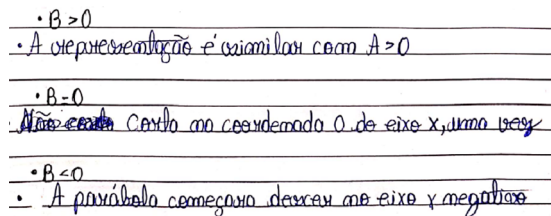 • B > 0
• A representação é similar com A > 0
• B = 0
Corta na coordenada 0 do eixo x, uma vez
• B < 0
• A parábola começara descer no eixo y negativo